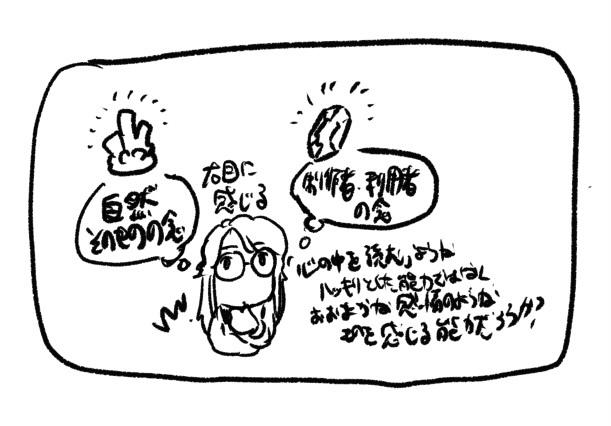 自然
そのものの念
右目に
感じる
制作者・利用者
の念
「心の中を読む」ような
ハッキリとした能力ではなく
おおまかな感情のような
ものを感じる能力だろうか?